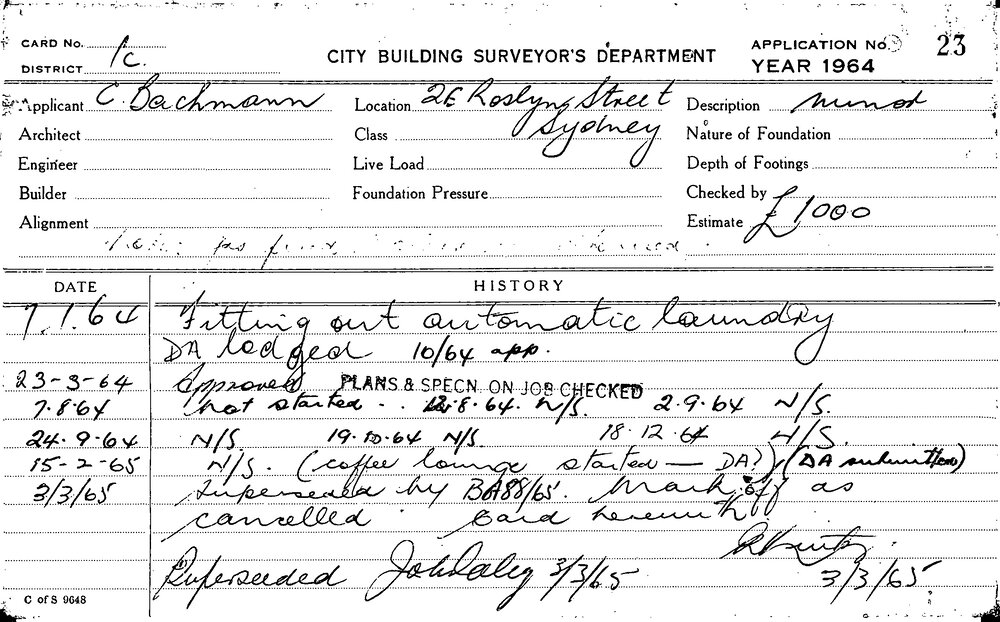 CARD No. 1c. CITY BUILDING SURVEYOR'S DEPARTMENT APPLICATION No. 23
DISTRICT YEAR 1964
Applicant C. Bachmann Location 2E Roslyn Street Description minor
Architect Class Sydney Nature of Foundation
Engineer Live Load Depth of Footings
Builder Foundation Pressure Checked by
Alignment Estimate £1000
DATE HISTORY
7.1.64 Fitting out automatic laundry
DA lodged 10/64 app.
23-3-64 Approved PLANS & SPECN. ON JOB CHECKED
7.8.64 not started . . 12.8.64. N/S. 2.9.64 N/S.
24.9.64 N/S. 19.10.64 N/S. 18.12.64 N/S.
15-2-65 N/S. (coffee lounge started — DA?) (DA submitted)
3/3/65 Superseded by BA88/65. Mark off as
cancelled Card herewith
Superseeded John Daley 3/3/65 3/3/65
C of S 9648